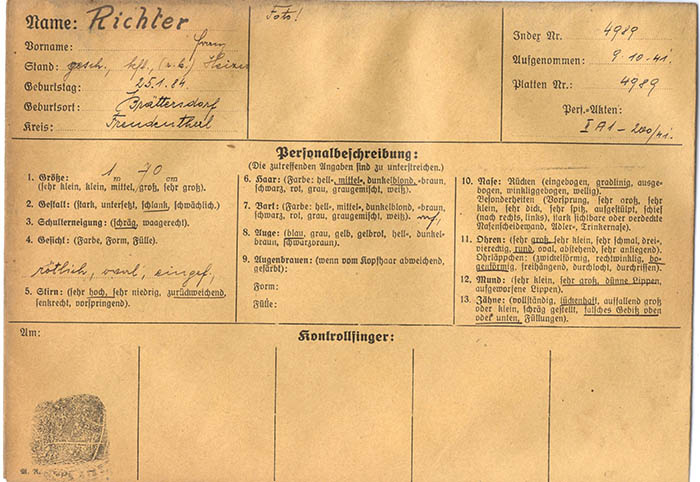 Name: Richter
Vorname: Franz
Stand: gesch., kfl., (r. k.) Heizer
Geburtstag: 25.1.84.
Geburtsort: Brättersdorf
Kreis: Freudenthal
Foto!
Index Nr. 4989
Aufgenommen: 9.10.41.
Platten Nr.: 4989
Pers.-Akten:
I A1 – 200/41.
Personalbeschreibung:
(Die zutreffenden Angaben sind zu unterstreichen.)
1. Größe: 1 m 70 cm
(sehr klein, klein, mittel, groß, sehr groß).
2. Gestalt: (stark, untersetzt, schlank, schwächlich.)
3. Schulterneigung: (schräg, waagerecht).
4. Gesicht: (Farbe, Form, Fülle).
rötlich, oval, eingef.
5. Stirn: (sehr hoch, sehr niedrig, zurückweichend,
senkrecht, vorspringend).
6. Haar: (Farbe: hell-, mittel-, dunkelblond, -braun,
schwarz, rot, grau, graugemischt, weiß).
7. Bart: (Farbe: hell-, mittel-, dunkelblond, -braun,
schwarz, rot, grau, graugemischt, weiß).
8. Auge: (blau, grau, gelb, gelbrot, hell-, dunkel-
braun, schwarzbraun).
9. Augenbrauen: (wenn vom Kopfhaar abweichend,
gefärbt):
Form:
Fülle:
10. Nase: Rücken (eingebogen, gradlinig, ausge-
bogen, winkliggebogen, wellig).
Besonderheiten (Vorsprung, sehr groß, sehr
klein, sehr dick, sehr spitz, aufgestülpt, schief
(nach rechts, links), stark sichtbare oder verdeckte
Nasenscheidewand, Adler-, Trinkernase).
11. Ohren: (sehr groß, sehr klein, sehr schmal, drei-,
viereckig, rund, oval, abstehend, sehr anliegend).
Ohrläppchen: (zwickelförmig, rechtwinklig, bo-
genförmig, freihängend, durchlocht, durchrissen).
12. Mund: (sehr klein, sehr groß, dünne Lippen,
aufgeworfene Lippen).
13. Zähne: (vollständig, lückenhaft, auffallend groß
oder klein, schräg gestellt, falsches Gebiß oben
oder unten, Füllungen).
Am:
Kontrollfinger: